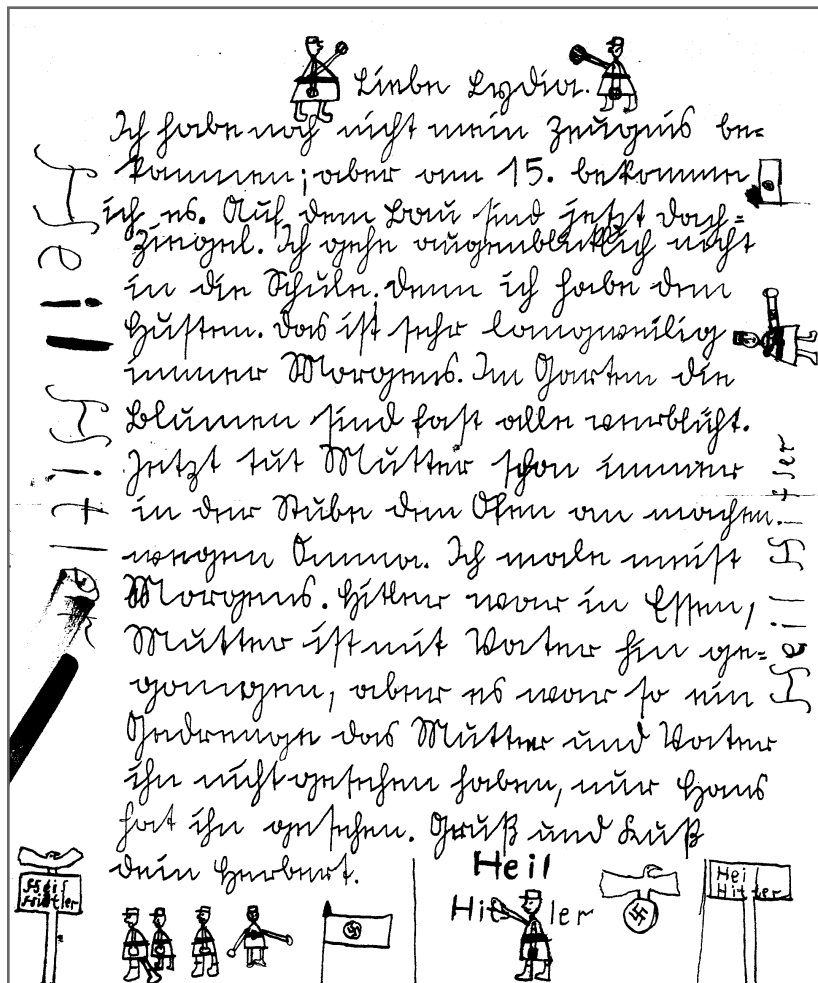 Liebe Lydia.
Ich habe noch nicht mein Zeugnis be=
kommen; aber am 15. bekomme
ich es. Auf dem Bau sind jetzt Dach=
ziegel. Ich gehe augenblicklich nicht
in die Schule. denn ich habe den
Husten. Das ist sehr langweilig
immer Morgens. Im Garten die
Blumen sind fast alle verblüht.
Jetzt tut Mutter schon immer
in der Stube den Ofen an machen.
wegen Omma. Ich male meist
Morgens. Hitler war in Essen,
Mutter ist mit Vater hin ge=
gangen, aber es war so ein
Gedrenge das Mutter und Vater
ihn nicht gesehen haben, nur Hans
hat ihn gesehen. Gruß und Kuß
dein Herbert.
Heil Hitler
Heil Hitler
Heil
Hitler
Heil
Hitler
Heil
Hitler